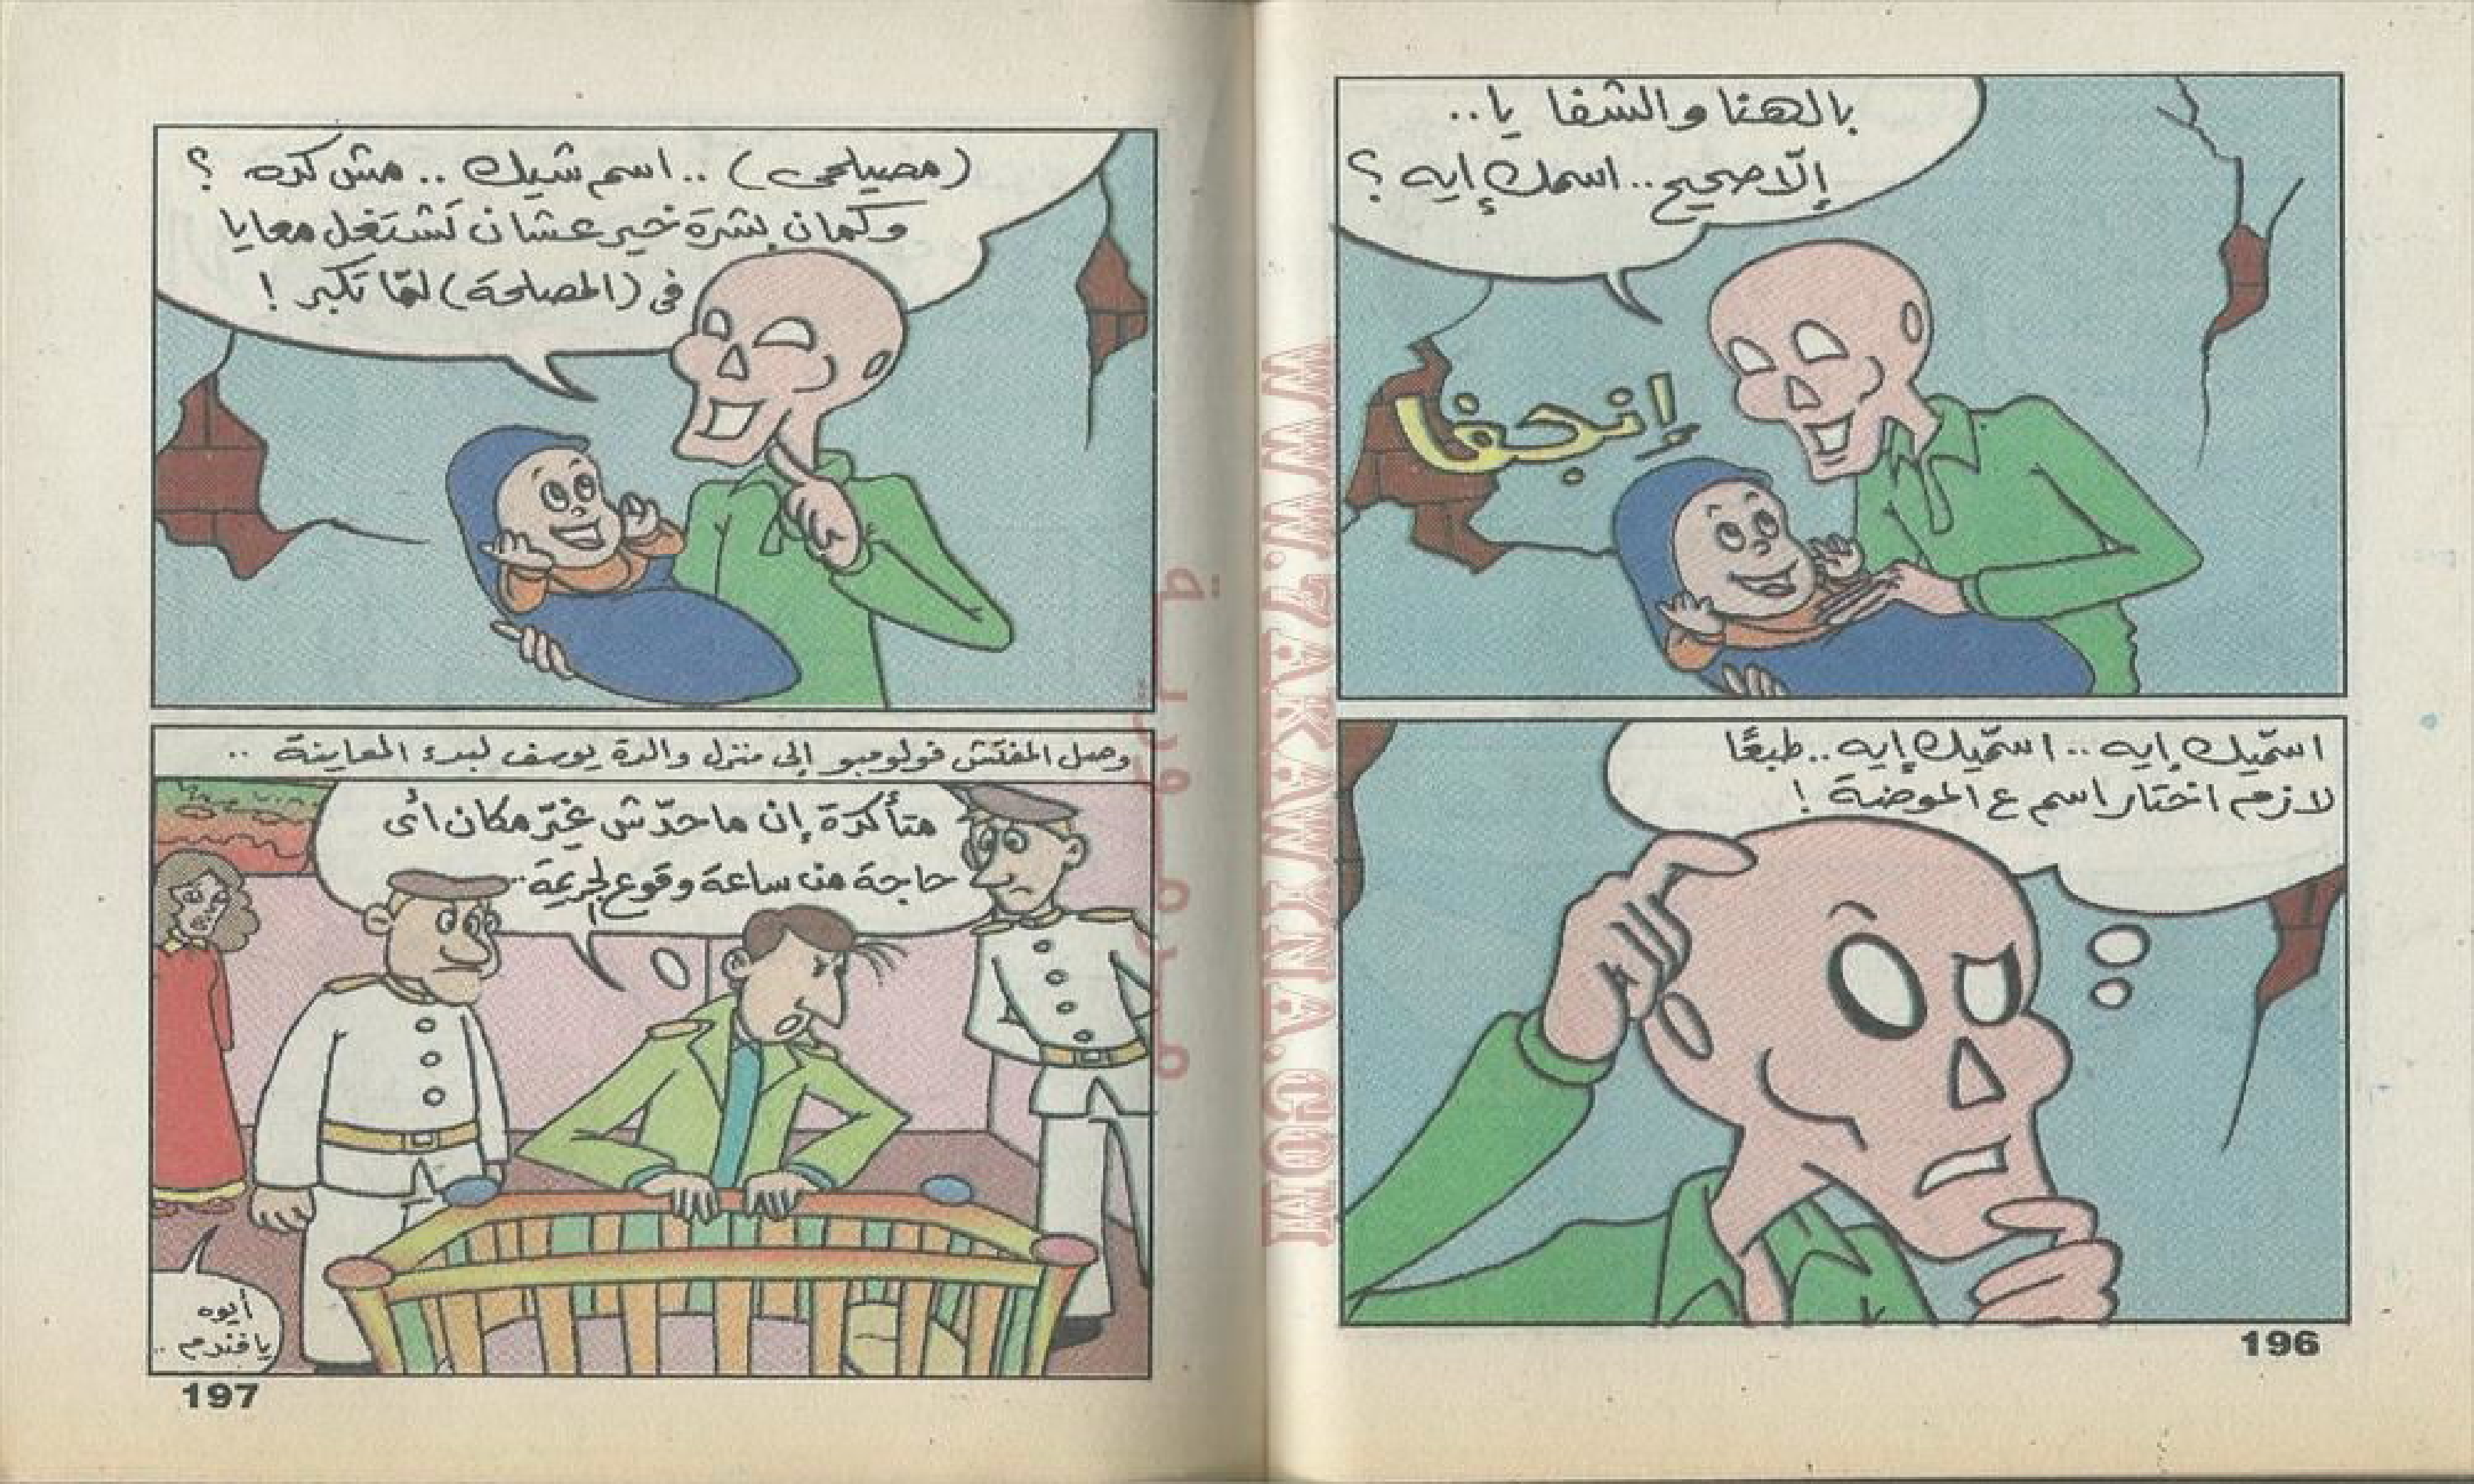 بالهنا والشفا يا..
إلّا صحيح.. اسمك إيه؟
إنجفا
اسمّيك إيه.. اسمّيك إيه.. طبعًا
لازم اختار اسم ع الموضة!
196
(مصيلحى).. اسم شيك.. مش كده؟
وكمان بشرة خير عشان تَشتغل معايا
فى (المصلحة) لمّا تكبر!
وصل المفتش قولومبو إلى منزل والدة يوسف لبدء المعاينة..
متأكدة إن ماحدّش غيّر مكان أى
حاجة من ساعة وقوع الجريمة..
أيوه
يافندم..
197
WWW.7AKAWYNA.COM